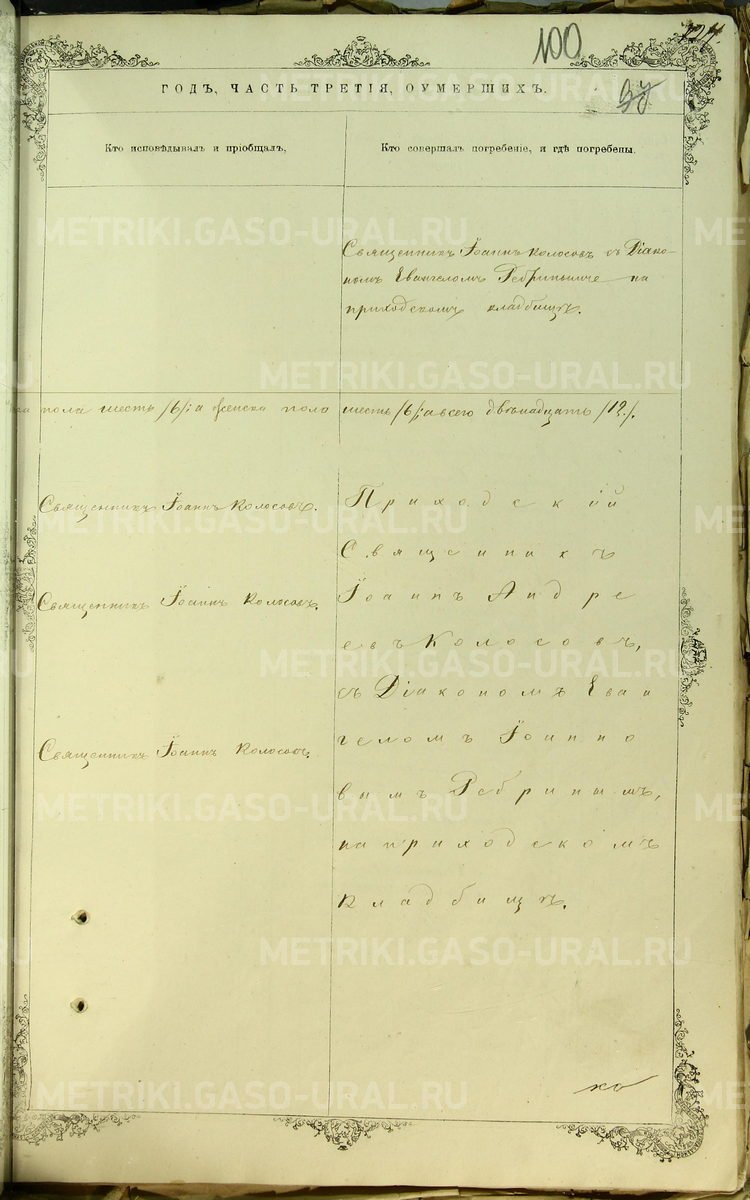 100
124.
ГОДЪ, ЧАСТЬ ТРЕТІЯ, ОУМЕРШИХЪ.
Кто исповѣдывалъ и пріобщалъ,
Кто совершалъ погребеніе, и гдѣ погребены.
METRIKI.GASO-URAL.RU
Священникъ Іоаннъ Колосовъ съ Діако-
номъ Евангеломъ на
приходскомъ кладбищѣ.
пола шесть /6/; а женска пола шесть /6/; а всего двѣнадцать /12/.
Священникъ Іоаннъ Колосовъ.
Священникъ Іоаннъ Колосовъ.
Священникъ Іоаннъ Колосовъ.
Приходскій
Священникъ
Іоаннъ Андре
евъ Колосовъ,
съ Діакономъ Еван
геломъ Іоанно
вымъ Ребринымъ,
на приходскомъ
кладбищѣ.